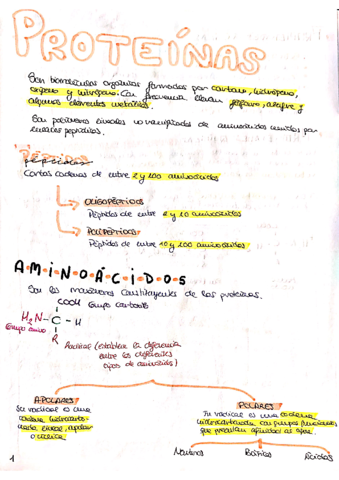 PROTEÍNAS
Son biomoléculas orgánicas formadas por carbono, hidrógeno,
oxígeno y nitrógeno. Con frecuencia llevan fósforo, azufre y
algunos elementos metálicos.
Son polímeros lineales no ramificados de aminoácidos unidos por
enlaces peptídicos.
Péptidos
Cortas cadenas de entre 2 y 100 aminoácidos
OLIGOPÉPTIDOS
Péptidos de entre 2 y 10 aminoácidos
POLIPÉPTIDOS
Péptidos de entre 10 y 100 aminoácidos
AMINOÁCIDOS
Son los monómeros constituyentes de las proteínas.
COOH Grupo carboxilo
H₂N - C - H
Grupo amino
R
Radical (establece la diferencia
entre los diferentes
tipos de aminoácidos)
APOLARES
Su radical es una
cadena hidrocarbo-
nada lineal,
o cíclica
POLARES
Su radical es una cadena
hidrocarbonada con grupos funcionales
que presentan afinidad al agua.
Neutros Básicos Ácidos
1